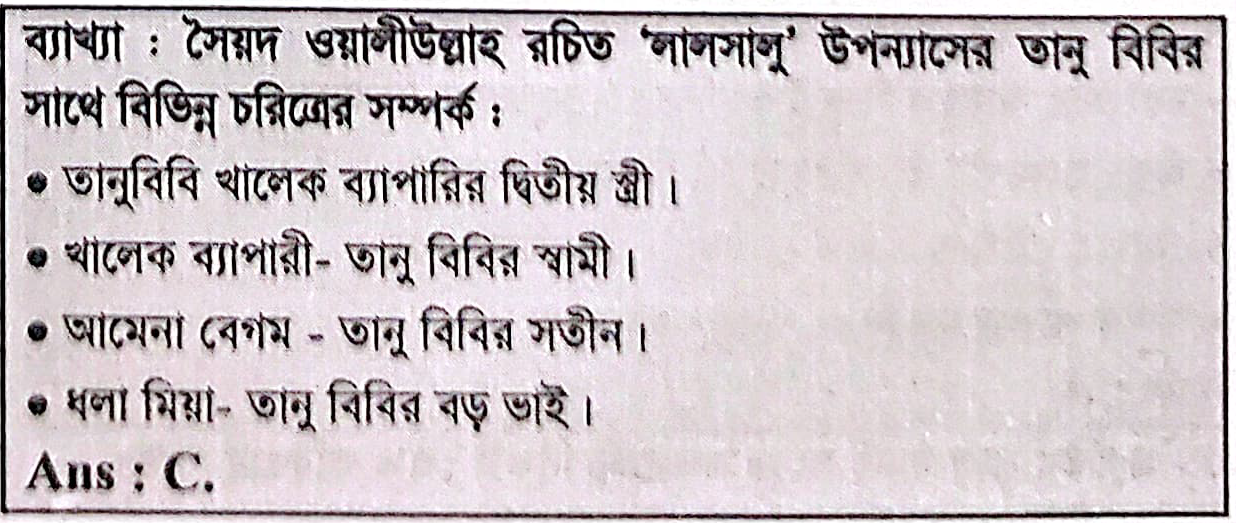 ব্যাখ্যা : সৈয়দ ওয়ালীউল্লাহ রচিত ‘লালসালু’ উপন্যাসের তানু বিবির
সাথে বিভিন্ন চরিত্রের সম্পর্ক :
● তানুবিবি খালেক ব্যাপারির দ্বিতীয় স্ত্রী।
● খালেক ব্যাপারী- তানু বিবির স্বামী।
● আমেনা বেগম - তানু বিবির সতীন।
● ধলা মিয়া- তানু বিবির বড় ভাই।
Ans : C.